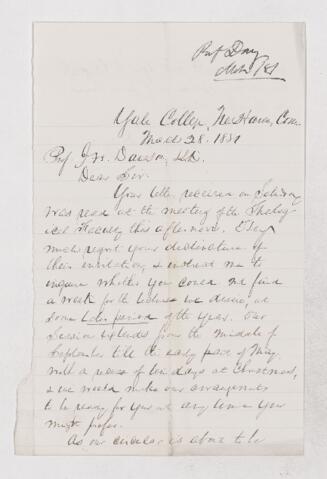 Prof Day
Yale College, New Haven, Conn.
March 28. 1881
Prof J. W. Dawson, LL.D.
Dear Sir.
Your letter received on Saturday
was read at the meeting of the Theolog-
ical Faculty this afternoon. They
much regret your declinature of
their invitation, & instruct me to
inquire whether you could not find
a week for the lectures we desire, at
some later period of the year. Our
Session extends from the middle of
September till the early part of May,
with a recess of ten days at Christmas,
& we would make our arrangements
to be ready for you at any time you
might prefer.
As our circular is about to be